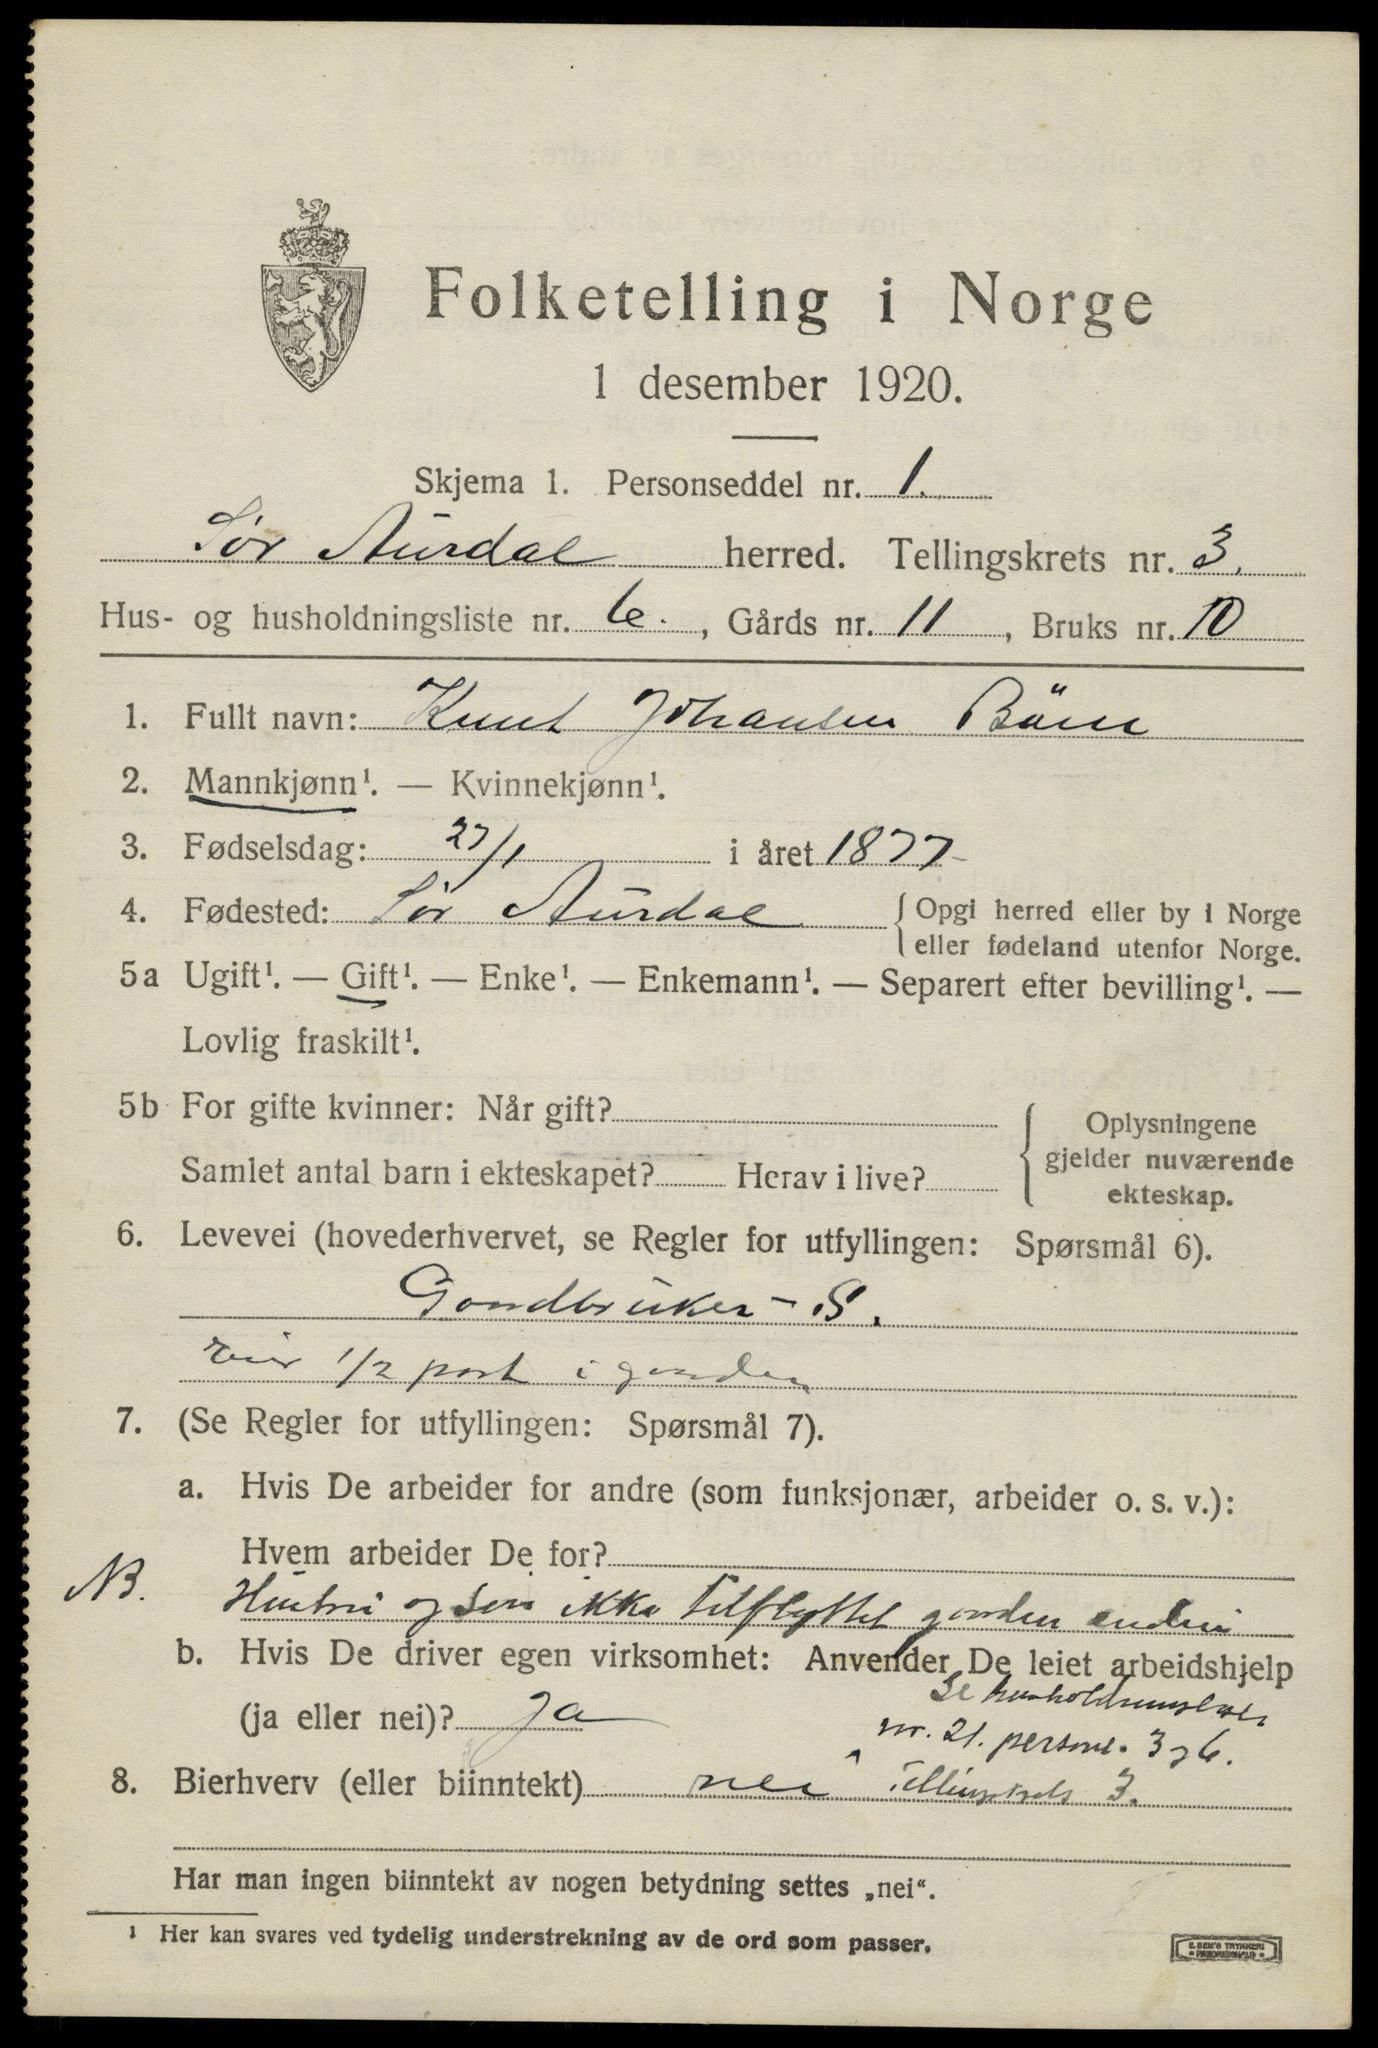 Folketelling i Norge
1 desember 1920.
Skjema 1. Personseddel nr. 1.
Sør Aurdal herred. Tellingskrets nr. 3.
Hus- og husholdningsliste nr. 6., Gårds nr. 11, Bruks nr. 10
1. Fullt navn: Knut Johansen Böen
2. Mannkjønn¹. — Kvinnekjønn¹.
3. Fødselsdag: 27/1 i året 1877
4. Fødested: Sør Aurdal { Opgi herred eller by i Norge
eller fødeland utenfor Norge.
5a Ugift¹. — Gift¹. — Enke¹. — Enkemann¹. — Separert efter bevilling¹. —
Lovlig fraskilt¹.
5b For gifte kvinner: Når gift? { Oplysningene
gjelder nuværende
Samlet antal barn i ekteskapet? Herav i live?
ekteskap.
6. Levevei (hovederhvervet, se Regler for utfyllingen: Spørsmål 6).
Gaardbruker - S.
eier 1/2 part i gaarden
7. (Se Regler for utfyllingen: Spørsmål 7).
a. Hvis De arbeider for andre (som funksjonær, arbeider o. s. v.):
Hvem arbeider De for?
NB. Hustru og søn ikke tilflyttet gaarden endnu
b. Hvis De driver egen virksomhet: Anvender De leiet arbeidshjelp
Se husholdningsliste
(ja eller nei)? Ja
nr. 21. person. 3 og 6.
8. Bierhverv (eller biinntekt) nei Tellingskrets 3.
Har man ingen biinntekt av nogen betydning settes „nei“.
¹ Her kan svares ved tydelig understrekning av de ord som passer.
E. SEM'S TRYKKERI
FREDRIKSHALD